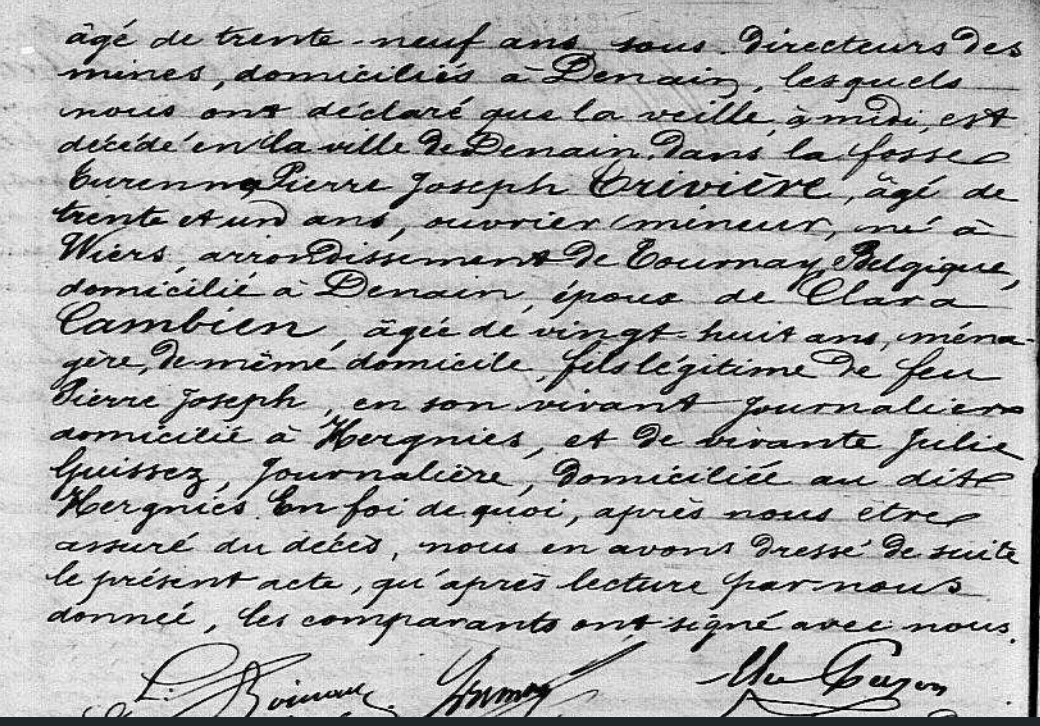 âgé de trente-neuf ans, sous-directeurs des
mines, domiciliés à Denain, lesquels
nous ont déclaré que la veille, à midi, est
décédé en la ville de Denain, dans la fosse
Turenne, Pierre Joseph Trivière, âgé de
trente et un ans, ouvrier mineur, né à
Wiers, arrondissement de Tournay Belgique,
domicilié à Denain, époux de Clara
Cambien, âgée de vingt-huit ans, ména-
gère, de même domicile, fils légitime de feu
Pierre Joseph, en son vivant journalier
domicilié à Hergnies, et de vivante Julie
Guissez, journalière, domiciliée au dit
Hergnies. En foi de quoi, après nous être
assuré du décès, nous en avons dressé de suite
le présent acte, qu'après lecture par nous
donnée, les comparants ont signé avec nous.